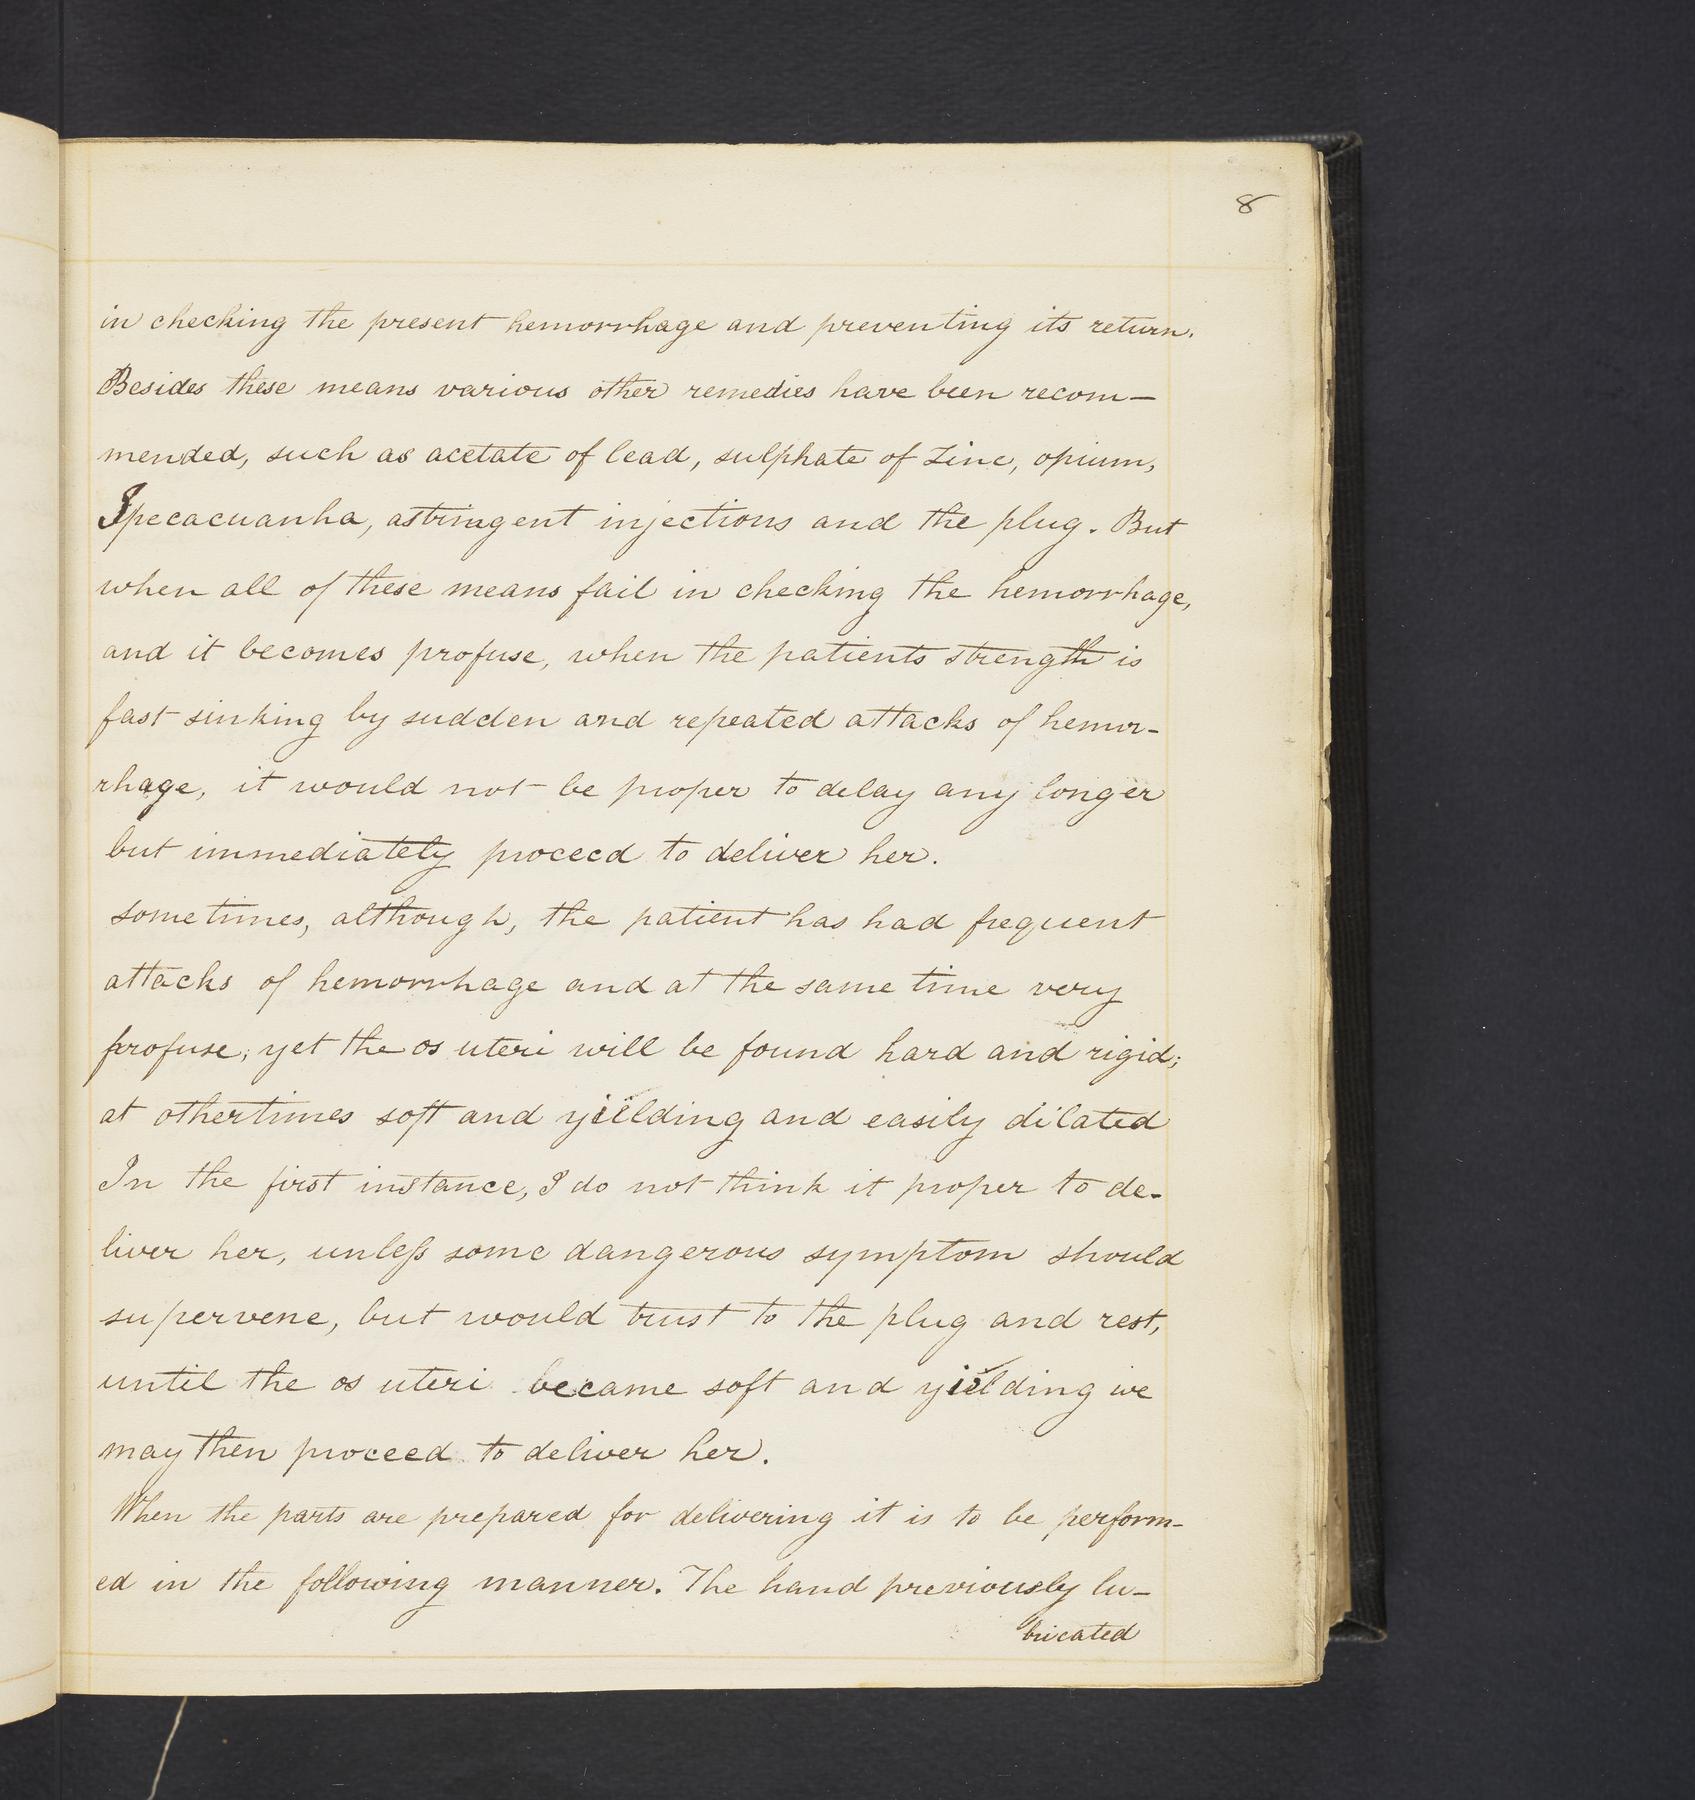 8
in checking the present hemorrhage and preventing its return.
Besides these means various other remedies have been recom-
mended, such as acetate of lead, sulphate of Zinc, opium,
Ipecacuanha, astringent injections and the plug. But
when all of these means fail in checking the hemorrhage,
and it becomes profuse, when the patients strength is
fast sinking by sudden and repeated attacks of hemor-
rhage, it would not be proper to delay any longer
but immediately proceed to deliver her.
sometimes, although, the patient has had frequent
attacks of hemorrhage and at the same time very
profuse, yet the os uteri will be found hard and rigid;
at othertimes soft and yielding and easily dilated
In the first instance, I do not think it proper to de-
liver her, unless some dangerous symptom should
supervene, but would trust to the plug and rest,
until the os uteri became soft and yielding we
may then proceed to deliver her.
When the parts are prepared for delivering it is to be perform-
ed in the following manner. The hand previously lu-
bricated